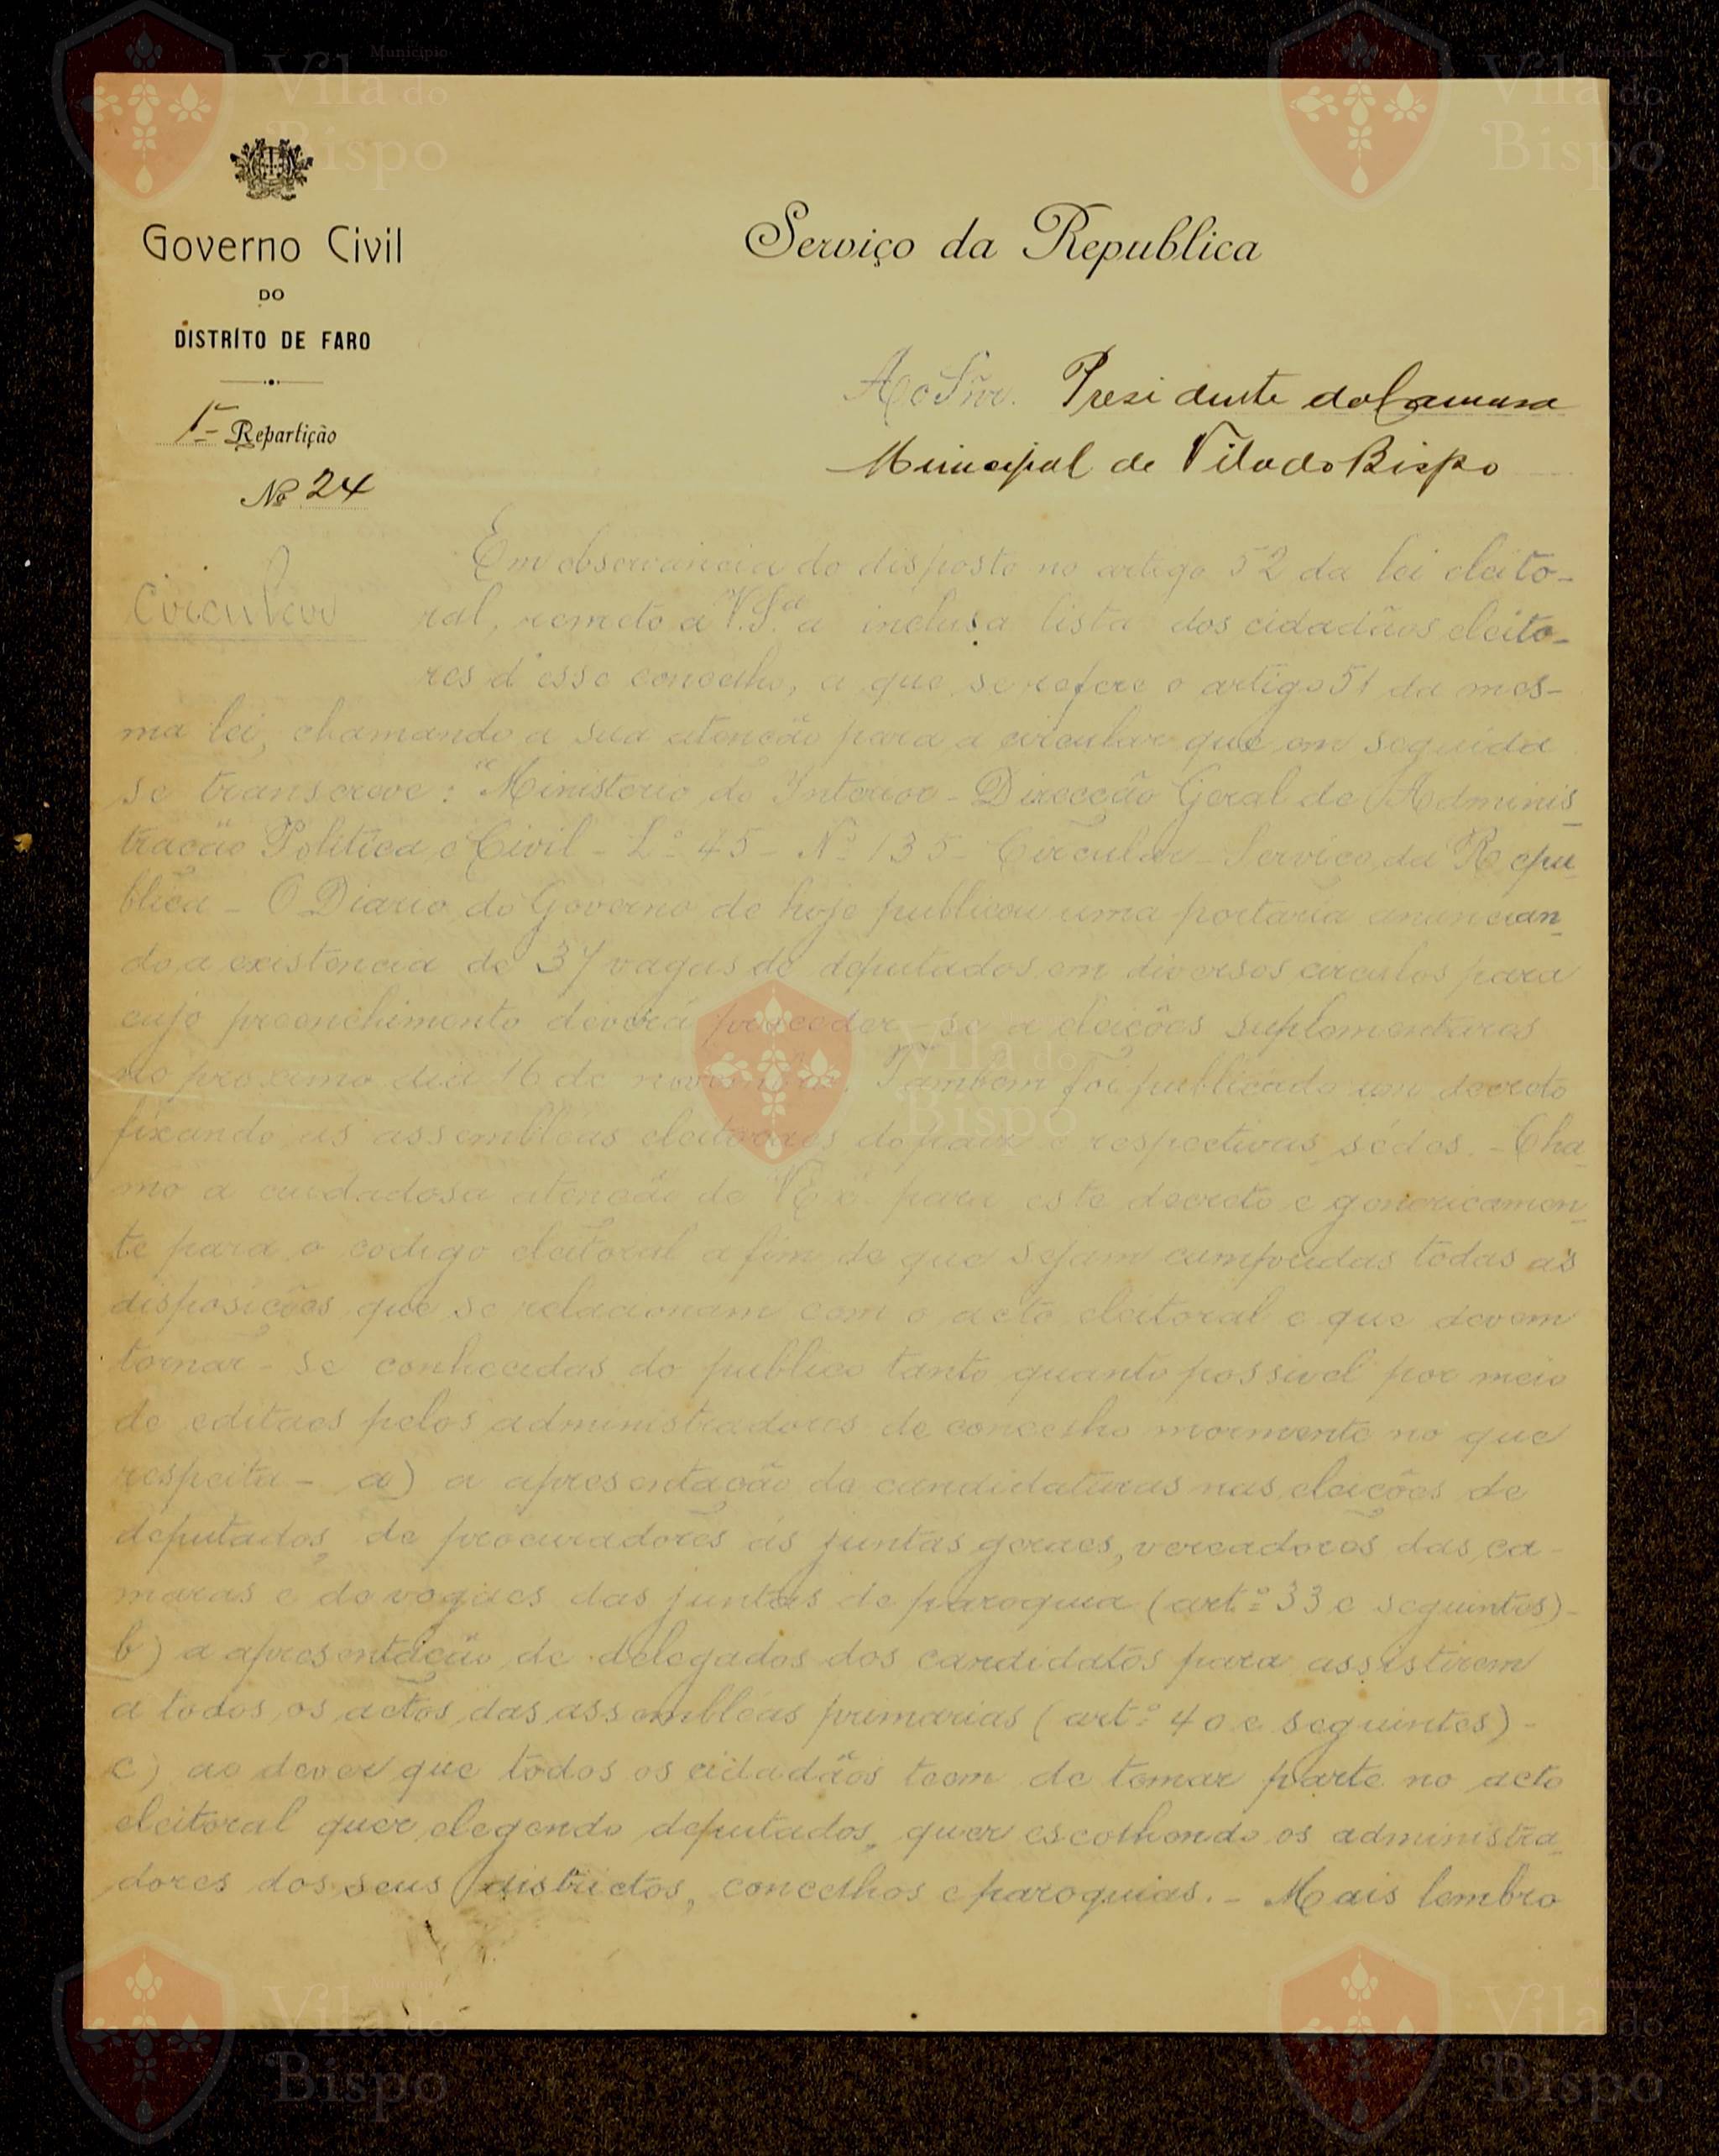 Governo Civil
DO
DISTRITO DE FARO
1ª Repartição
Nº 24
Serviço da Republica
Ao Snr. Presidente da Camara
Municipal de Vila do Bispo
Circular
Em observancia do disposto no artigo 52 da lei eleito-
ral, remeto a V. S.ª a inclusa lista dos cidadãos eleito-
res d'esse concelho, a que se refere o artigo 51 da mes-
ma lei, chamando a sua atenção para a circular que em seguida
se transcreve: "Ministerio do Interior - Direcção Geral de Adminis-
tração Politica e Civil - L.º 45 - Nº 135 - Circular - Serviço da Repu-
blica - O Diario do Governo de hoje publicou uma portaria anuncian-
do a existencia de 37 vagas de deputados em diversos circulos para
cujo preenchimento deverá proceder-se a eleições suplementares
no proximo dia 16 de novembro. Tambem foi publicado um decreto
fixando as assembleas eleitoraes do paiz e respectivas sédes. - Cha-
mo a cuidadosa atenção de V. Ex.ª para este decreto e genericamen-
te para o codigo eleitoral a fim de que sejam cumpridas todas as
disposições que se relacionam com o acto eleitoral e que devem
tornar-se conhecidas do publico tanto quanto possivel por meio
de editaes pelos administradores de concelho mormente no que
respeita - a) a apresentação de candidaturas nas eleições de
deputados, de procuradores ás juntas geraes, vereadores das ca-
maras e de vogaes das juntas de paroquia (art.º 33 e seguintes) -
b) a apresentação de delegados dos candidatos para assistirem
a todos os actos das assembleas primarias (art.º 40 e seguintes) -
c) ao dever que todos os cidadãos teem de tomar parte no acto
eleitoral quer elegendo deputados, quer escolhendo os administra-
dores dos seus districtos, concelhos e paroquias. - Mais lembro
Município
Vila do
Bispo
Vila do
Bispo
Vila do
Bispo
Vila do
Bispo
Vila do
Bispo